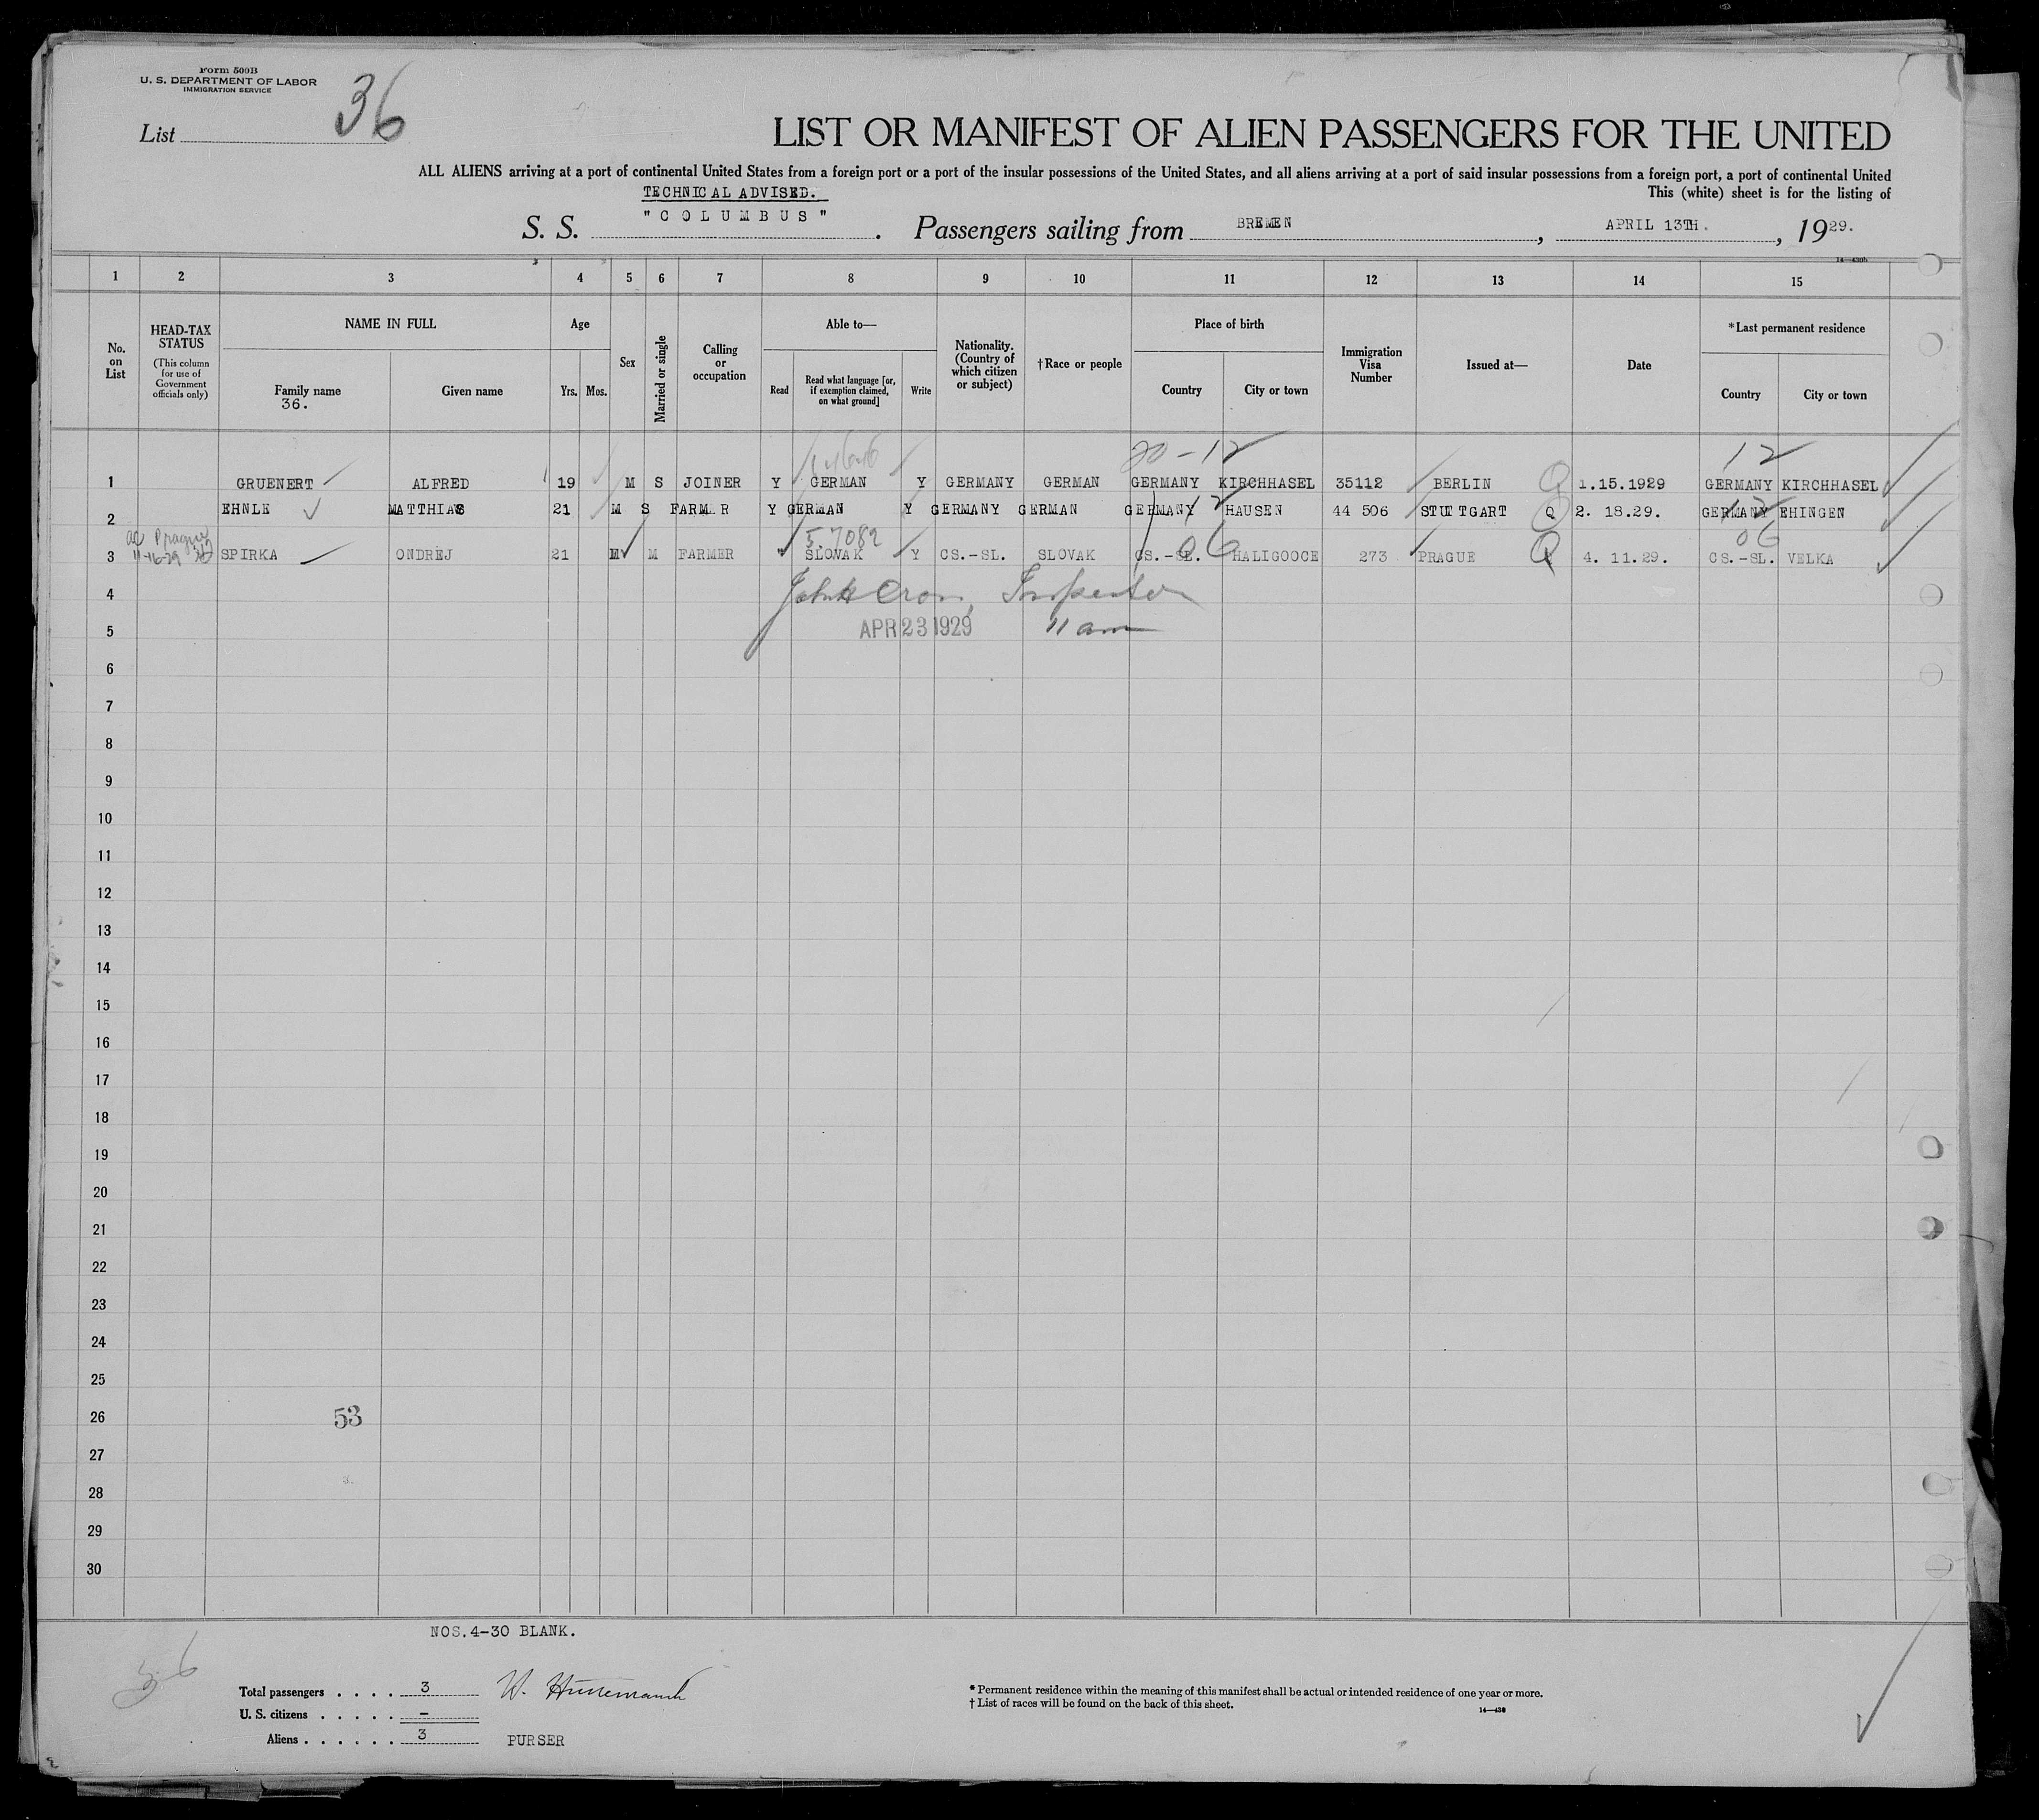 Form 500B
U. S. DEPARTMENT OF LABOR
IMMIGRATION SERVICE
36
List
LIST OR MANIFEST OF ALIEN PASSENGERS FOR THE UNITED
ALL ALIENS arriving at a port of continental United States from a foreign port or a port of the insular possessions of the United States, and all aliens arriving at a port of said insular possessions from a foreign port, a port of continental United
TECHNICAL ADVISED. This (white) sheet is for the listing of
S. S. "COLUMBUS". Passengers sailing from BREMEN, APRIL 13TH., 1929.
14—430b
1 2 3 4 5 6 7 8 9 10 11 12 13 14 15
No. on List HEAD-TAX STATUS (This column for use of Government officials only) NAME IN FULL Family name Given name Age Yrs. Mos. Sex Married or single Calling or occupation Able to— Read Read what language [or, if exemption claimed, on what ground] Write Nationality. (Country of which citizen or subject) †Race or people Place of birth Country City or town Immigration Visa Number Issued at— Date *Last permanent residence Country City or town
36.
20-12 12
1 GRUENERT ALFRED 19 M S JOINER Y GERMAN Y GERMANY GERMAN GERMANY KIRCHHASEL 35112 BERLIN Q 1.15.1929 GERMANY KIRCHHASEL
2 EHNLE MATTHIAS 21 M S FARM.R Y GERMAN Y GERMANY GERMAN GERMANY 12 HAUSEN 44 506 STUTTGART Q 2. 18.29. GERMANY 12 EHINGEN
5.7082 06 06
3 SPIRKA ONDREJ 21 M M FARMER SLOVAK Y CS.-SL. SLOVAK CS.-SL. HALIGOOCE 273 PRAGUE Q 4. 11.29. CS.-SL. VELKA
4 Inspector
5 APR 23 1929 11 am
6
7
8
9
10
11
12
13
14
15
16
17
18
19
20
21
22
23
24
25
26 53
27
28
29
30
NOS.4-30 BLANK.
36
Total passengers . . . . 3
U. S. citizens . . . . . –
Aliens . . . . . . 3 PURSER
* Permanent residence within the meaning of this manifest shall be actual or intended residence of one year or more.
† List of races will be found on the back of this sheet.
14—430